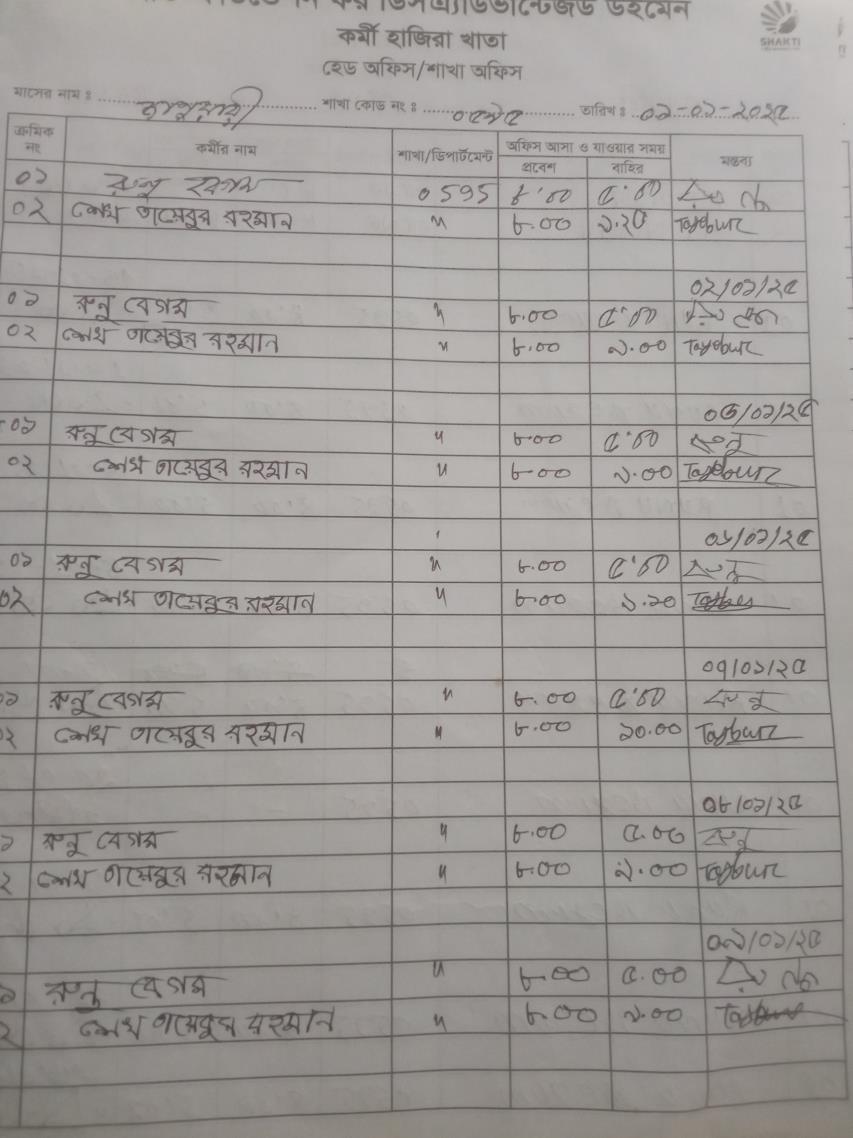 ডিসএ্যাডভান্টেজড উইমেন
কর্মী হাজিরা খাতা
হেড অফিস/শাখা অফিস
SHAKTI
মাসের নাম ঃ জানুয়ারী শাখা কোড নং ঃ ০৫৯৫ তারিখ ঃ ০১-০১-২০২৫
ক্রমিক নং কর্মীর নাম শাখা/ডিপার্টমেন্ট অফিস আসা ও যাওয়ার সময় মন্তব্য
প্রবেশ বাহির
০১ রুনু বেগম 0595 ৮.০০ ৫.০০
০২ শেখ তায়েবুর রহমান " ৮.০০ ৯.২০ Tayebur
০২/০১/২৫
০১ রুনু বেগম " ৮.০০ ৫.০০
০২ শেখ তায়েবুর রহমান " ৮.০০ ৯.০০ Tayebur
০৫/০১/২৫
০১ রুনু বেগম " ৮.০০ ৫.০০ রুনু
০২ শেখ তায়েবুর রহমান " ৮.০০ ৯.০০ Tayebur
০৬/০১/২৫
০১ রুনু বেগম " ৮.০০ ৫.০০ রুনু
০২ শেখ তায়েবুর রহমান " ৮.০০ ৯.১০
০৭/০১/২৫
০১ রুনু বেগম " ৮.০০ ৫.০০ রুনু
০২ শেখ তায়েবুর রহমান " ৮.০০ ১০.০০ Tayebur
০৮/০১/২৫
১ রুনু বেগম " ৮.০০ ৫.০০ রুনু
২ শেখ তায়েবুর রহমান " ৮.০০ ৯.০০ Tayebur
০৯/০১/২৫
১ রুনু বেগম " ৮.০০ ৫.০০
২ শেখ তায়েবুর রহমান " ৮.০০ ৯.০০